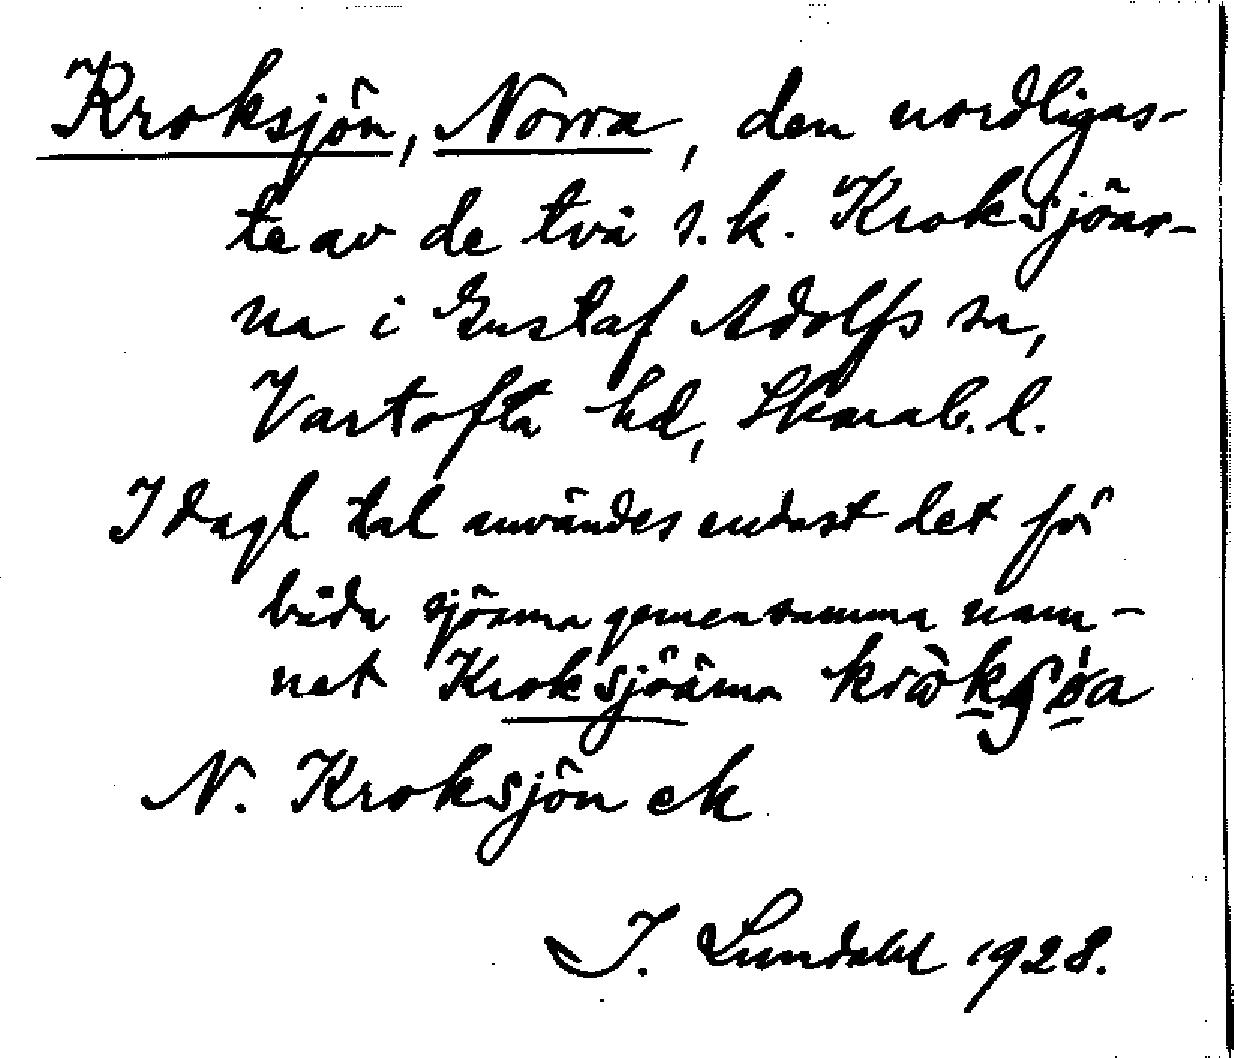 Kroksjön, Norra, den nordligas-
te av de två s.k. Kroksjöar-
na i Gustaf Adolfs sn,
Vartofta hd, Skarab. l.
I dagl. tal användes endast det för
båda sjöarna gemensamma nam-
net Kroksjöarna
N. Kroksjön ek
I. Lundahl 1928.